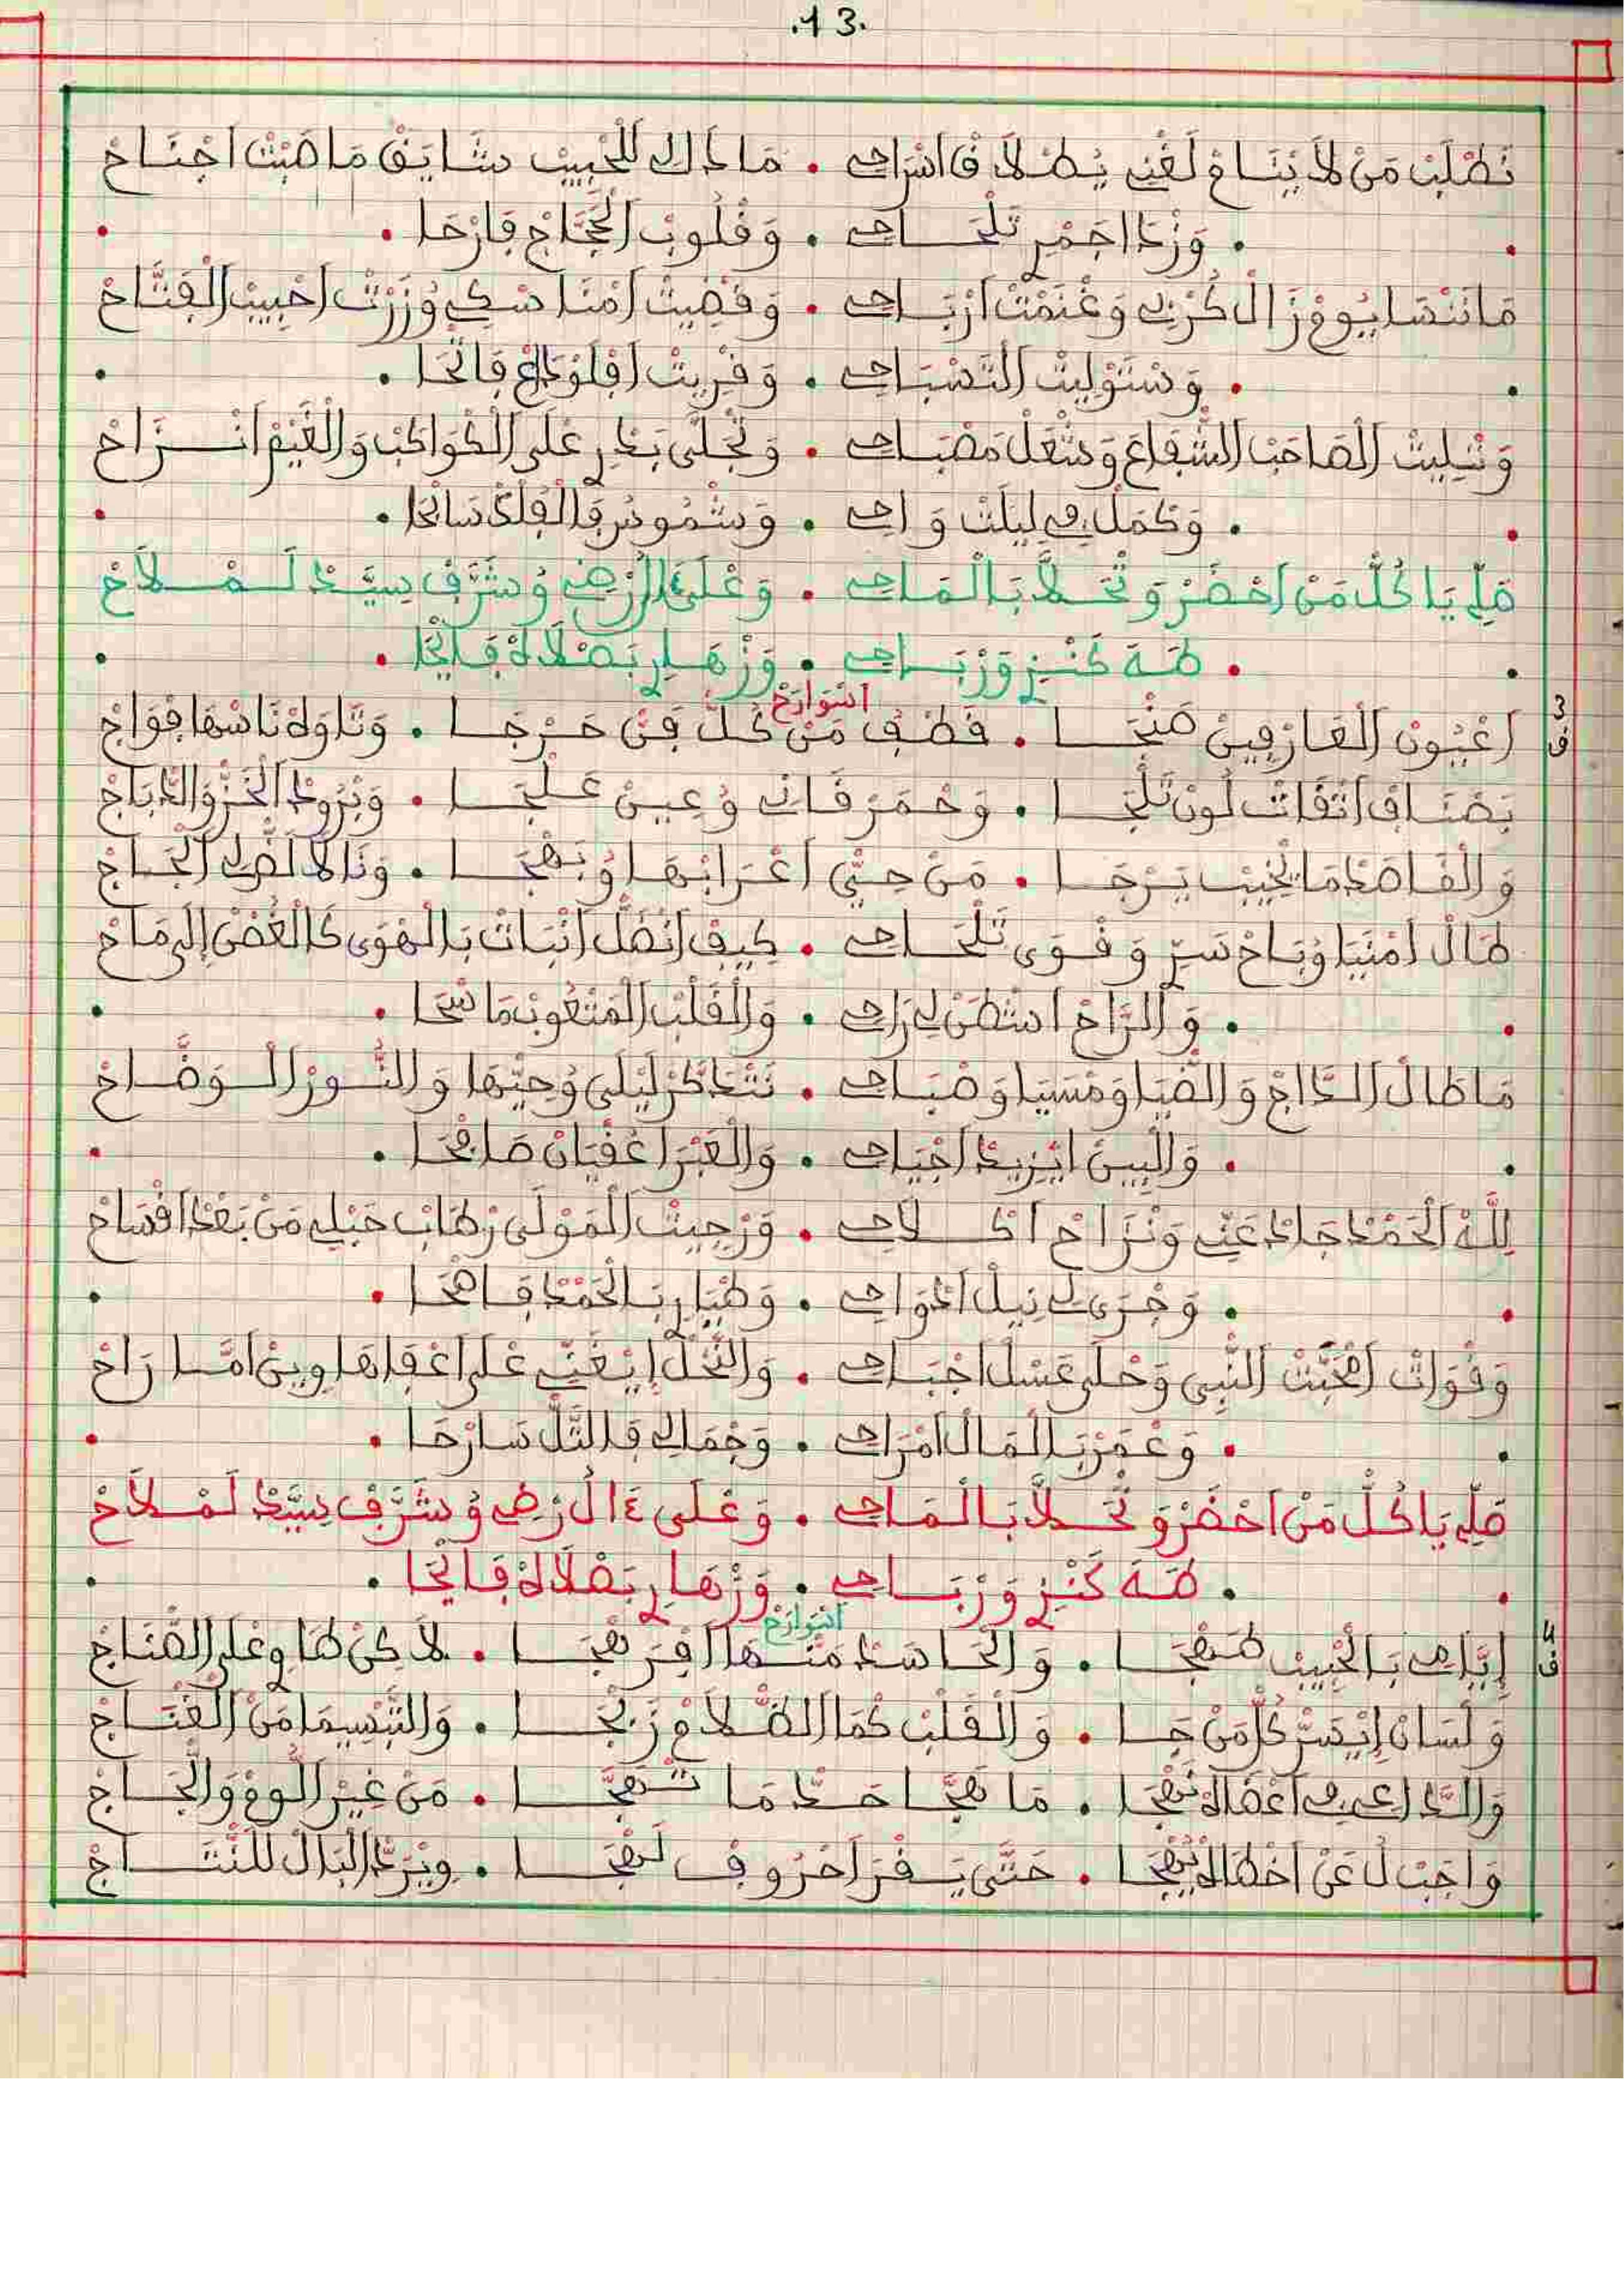 .13.
نَطْلَبْ مَنْ لَا يْنَامْ لَغْنِي يُطْلَا فَاسْرَاحِي . مَاذَاكْ لَلْحْبِيبْ شَايَقْ مَا صَبْتْ اجْنَاحْ
. وَزْدَا اجْمَرْ تَلْحَاحِي . وَقْلُوبْ الْحُجَّاجْ فَارْحَا .
مَا نَنْسَا يُومْ زَالْ كُرْبِي وَغْنَمْتْ ارْبَاحِي . وَقْضِيتْ امْنَاسْكِي وُزَرْتْ احْبِيبْ الْفَتَّاحْ
. وَسْتَوْلِيتْ التَّسْبَاحِي . وَقْرِيتْ افْلَوْدَاعْ فَاتْحَا .
وَتْلِيتْ الْصَاحَبْ الشَّفَاعَ وَشْعَلْ مَصْبَاحِي . وَتْجَلَّى بَدْرِ عْلَى الْكْوَاكَبْ وَالْغَيْمْ انْزَاحْ
. وَكْمَلْ فِي لِيلَتْ وَاحِي . وَشْمُوسْ فَالْفْلَكْ سَابْحَا .
صَلِّ يَا كُلّْ مَنْ احْضَرْ وَتْحَلَّا بَالْمَاحِي . وَعْلَى ءَالْ رْضِي وُشَرَّفْ سِيَّدْ لَمْلَاحْ
. طَهَ كَنْزِ وَرْبَاحِي . وَزْهَارِ بَصْلَاةْ فَايْحَا .
اسْوَارَحْ
3 ق اعْيُونْ الْعَارْفِينْ صَنْجَا . قَطْفْ مَنْ كُلّْ فَنْ حَرْجَا . وَتَّاوَهْ نَاسْهَا فْوَاجْ
بَصْنَافْ اتْقَاتْ لُونْ تَلْجَا . وَحْمَرْ قَانِي وُعِينْ عَلْجَا . وَبْرُودْ الْخَزّْ وَالدّْبَاجْ
وَالْقَاصَدْ مَا يْخِيبْ يَرْجَا . مَنْ حِيّْ اعْرَابْهَا وُبَهْجَا . وَنَا لَا لَضْرَكْ الْحَاجْ
طَالْ امْنَيَا وُبَاحْ سَرِّ وَقْوَى تَلْحَاحِي . كِيفْ انْضَلّْ انْبَاتْ بَالْهْوَى كَالْغُصْنْ إِلَى مَاحْ
. وَالرَّاحْ اشْطَنْ لِي رَاحِي . وَالْقَلْبْ الْمَتْعُوبْ مَا سْحَا .
مَا طَالْ الدَّاجْ وَالضّْيَا وَمْسَيَا وَصْبَاحِي . نَتْدَكَّرْ لَيْلَى وُحِيّْهَا وَالنُّورْ الْوَضَّاحْ
. وَالْبِينْ ايْزِيدْ اجْيَاحِي . وَالْعَبْرَا عُقْيَانْ صَافْحَا .
لِلَّهْ الْحَمْدْ جَادْ عَنِّي وَنْزَاحْ اكْلَاحِي . وَرْجِيتْ الْمَوْلَى رْطَابْ حَبْلِي مَنْ بَعْدْ اقْسَاحْ
. وَجْرَى لِي نِيلْ ادْوَاحِي . وَطْيَارِ بَالْحَمْدْ فَاصْحَا .
وَقْوَاتْ امْحَبَّتْ النّْبِي وَحْلَى عَسْلْ اجْبَاحِي . وَالنَّحْلْ إِيْغَنِّي عْلَى اعْقَاهَا وِينْ امَّا رَاحْ
. وَعْمَرْ بَالْمَالْ امْرَاحِي . وَجْمَالِي فَالتَّلّْ سَارْحَا .
صَلِّ يَا كُلّْ مَنْ احْضَرْ وَتْحَلَّا بَالْمَاحِي . وَعْلَى ءَالْ رْضِي وُشَرَّفْ سِيَّدْ لَمْلَاحْ
. طَهَ كَنْزِ وَرْبَاحِي . وَزْهَارِ بَصْلَاةْ فَايْحَا .
اسْوَارَحْ
4 ق بَالْحْبِيبْ طَهْجَا . وَالْحَاسَدْ مَنْهَا . وَعْلَى الصَّنَاجْ
وَلْسَانْ إِيْسَرّْ كُلّْ مَنْ جَا . وَالْقَلْبْ كْمَا الظّْلَامْ زَنْجَا . وَالتَّبْسِيمَا مَنْ الْغْنَاجْ
وَالدَّاعِي فِي اعْمَاهْ نَهْجَا . مَا هَجَّا حَدّْ مَا تْهَجَّا . مَنْ غِيرْ اللُّومْ وَالْحَاجْ
وَاجَبْ لُ عَنْ اخْطَاهْ يُهْجَا . حَتَّى يَقْرَ احْرُوفْ لَهْجَا . وِيْرَدْ الْبَالْ لَلنَّتَاجْ